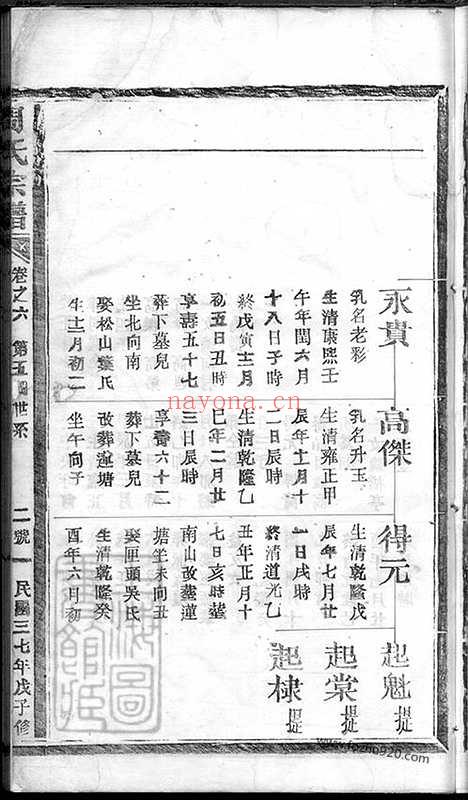 永貴
乳名老彩
生清康熙壬
午年閏六月
十八日子時
終戊寅十二月
初五日丑時
享壽五十七
葬下墓兒
坐北向南
娶松山葉氏
生十二月初二
高傑
乳名升玉
生清雍正甲
辰年十二月十
二日辰時
生清乾隆乙
巳年二月廿
三日辰時
享壽六十二
葬下墓兒
改葬蓮塘
坐午向子
得元
生清乾隆戊
辰年七月廿
一日戌時
終清道光乙
丑年正月十
七日亥時葬
南山改葬蓮
塘坐未向丑
娶厘頭吳氏
生清乾隆癸
酉年六月初
起魁 提
起棠 提
起棣 提
周氏宗譜
卷之六
第五 世系
二號
民國三七年戊子修
nayona.cn